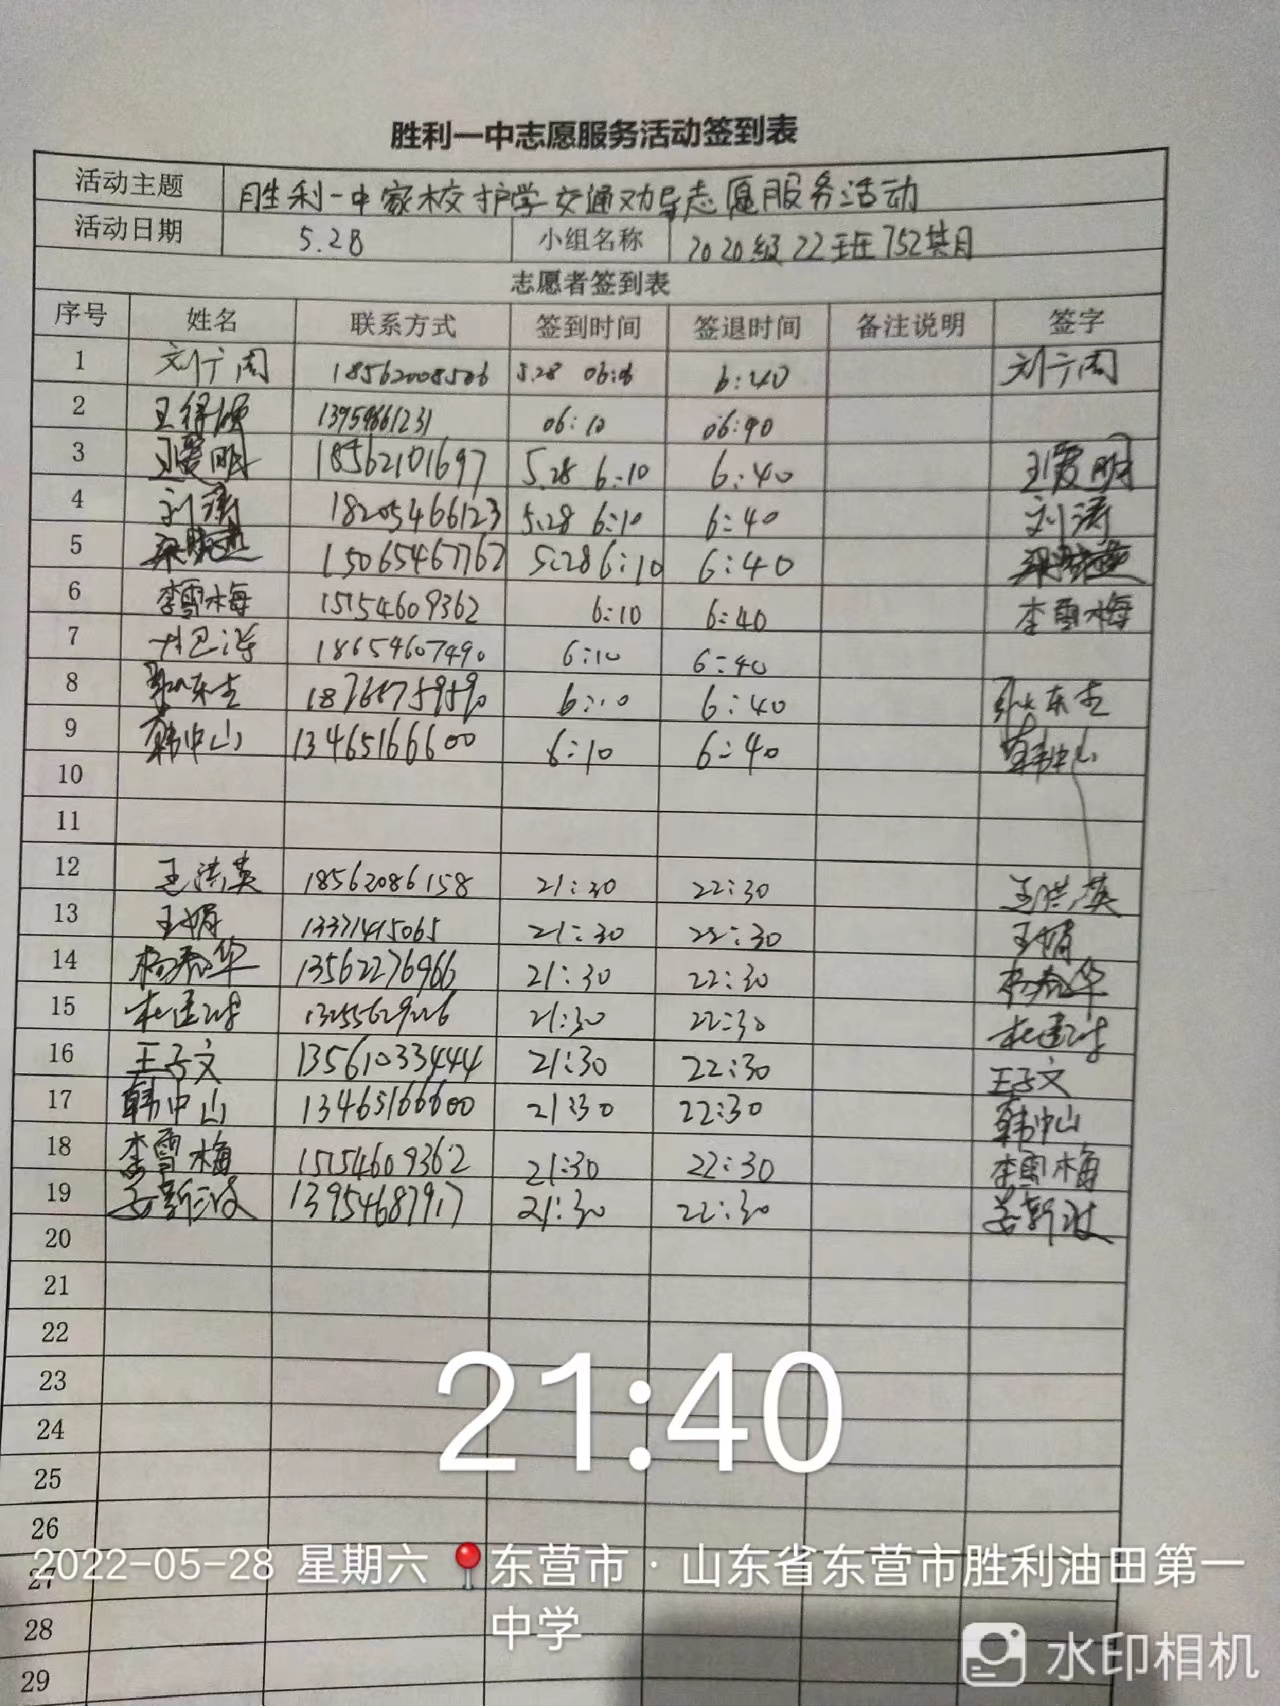 胜利一中志愿服务活动签到表
活动主题 胜利一中家校护学交通劝导志愿服务活动
活动日期 5.28 小组名称 2020级22班752其月
志愿者签到表
序号 姓名 联系方式 签到时间 签退时间 备注说明 签字
1 刘广周 5.28 6:40 刘广周
2 王 13954661231 06:10 06:40
3 王爱明 18562101697 5.28 6:10 6:40 王爱明
4 刘涛 18205466123 5.28 6:10 6:40 刘涛
5 15065467762 5.28 6:10 6:40
6 李雪梅 15154609362 6:10 6:40 李雪梅
7 18654607490 6:10 6:40
8 张东 18765759590 6:10 6:40 张东
9 韩中山 13465166600 6:10 6:40 韩中山
10
11
12 王洪英 18562086158 21:30 22:30 王洪英
13 王娟 13371415065 21:30 22:30 王娟
14 杨春华 13562276966 21:30 22:30 杨春华
15 杜建 21:30 22:30 杜建
16 王子文 13561033444 21:30 22:30 王子文
17 韩中山 13465166600 21:30 22:30 韩中山
18 李雪梅 15154609362 21:30 22:30 李雪梅
19 姜新波 13954687917 21:30 22:30 姜新波
20
21
22
23
24
25
26
27
28
29
21:40
2022-05-28 星期六 东营市·山东省东营市胜利油田第一
中学
水印相机